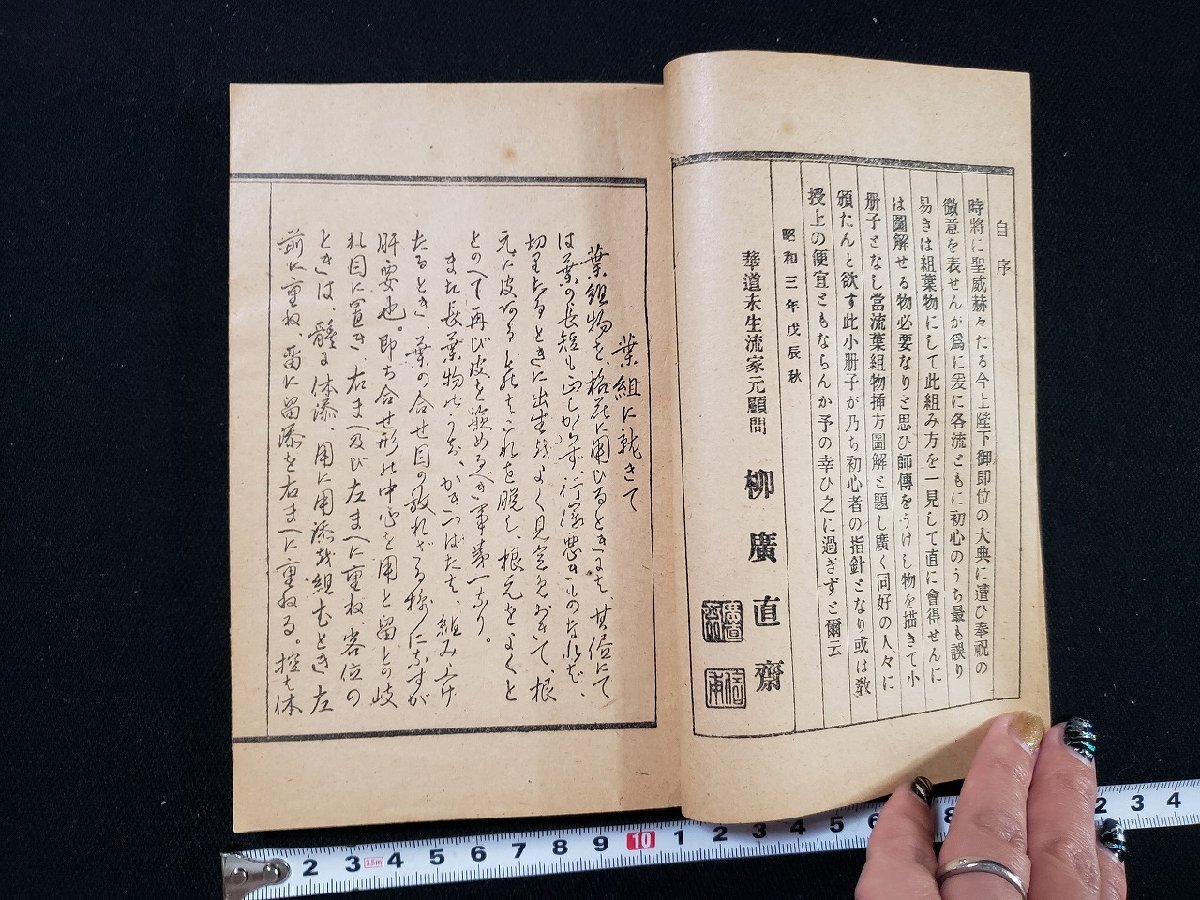 自序
時將に聖威赫々たる今上陛下御即位の大典に遭ひ奉祝の
微意を表せんが爲に爰に各流ともに初心のうち最も誤り
易きは組葉物にして此組み方を一見して直に會得せんに
は圖解せる物必要なりと思ひ師傳をうけし物を描きて小
册子となし當流葉組物挿方圖解と題し廣く同好の人々に
頒たんと欲す此小册子が乃ち初心者の指針となり或は敎
授上の便宜ともならんか予の幸ひ之に過ぎずと爾云
昭和三年戊辰秋
華道未生流家元顧問
柳廣直齋
葉組に就きて
葉組物を格花に用ひるときは、其儘にて
は葉の長短も正しからず、
切りたるときに出生をよく見定めおきて、根
元に皮あるものはこれを脱し、根元をよくと
とのへて再び皮を嵌めるべき事第一なり。
また長葉物のうち、かきつばたは、組み上げ
たるとき、葉の合せ目の放れざる様になすが
肝要也。即ち合せ形の中心を用と留との岐
れ目に置き、右まへ及び左まへに重ね、客位の
ときは、體に体添、用に用添を組むとき左
前に重ね、留に留添を右まへに重ねる。控も体
1 2 3 4 5 6 7 8 9 10 1 2 3 4 5 6 2 3 4